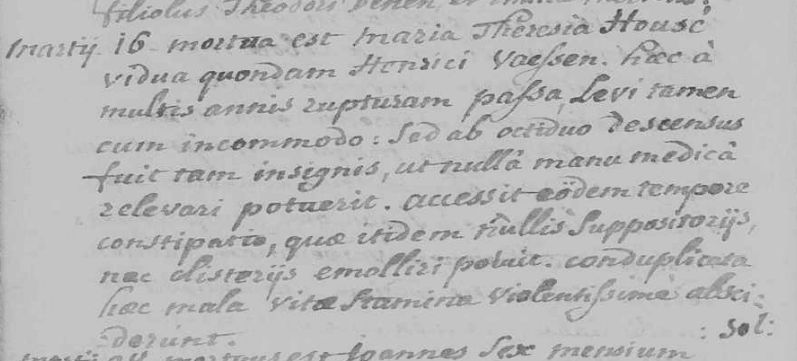 filiolus Theodori
Martij 16 mortua est Maria Theresia Housé
vidua quondam Henrici Vaessen. hæc à
multis annis rupturam passa, Levi tamen
cum incommodo: Sed ab octiduo descensus
fuit tam insignis, ut nullâ manu medicâ
relevari potuerit. accessit eödem tempore
constipatio, quæ itidem nullis Suppositorijs,
nec clisterijs emolliri potuit. conduplicata
hæc mala vitæ Stamina violentissimè absci-
derunt. : sol:
mortuus est Joannes Sex mensium